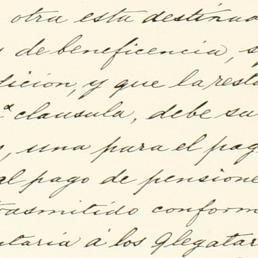 otra esta destinad
de beneficencia, s
dicion, y que la resta
ª clausula, debe su
, una para el pag
al pago de pensione
trasmitido conform
ntaria á los glegatar